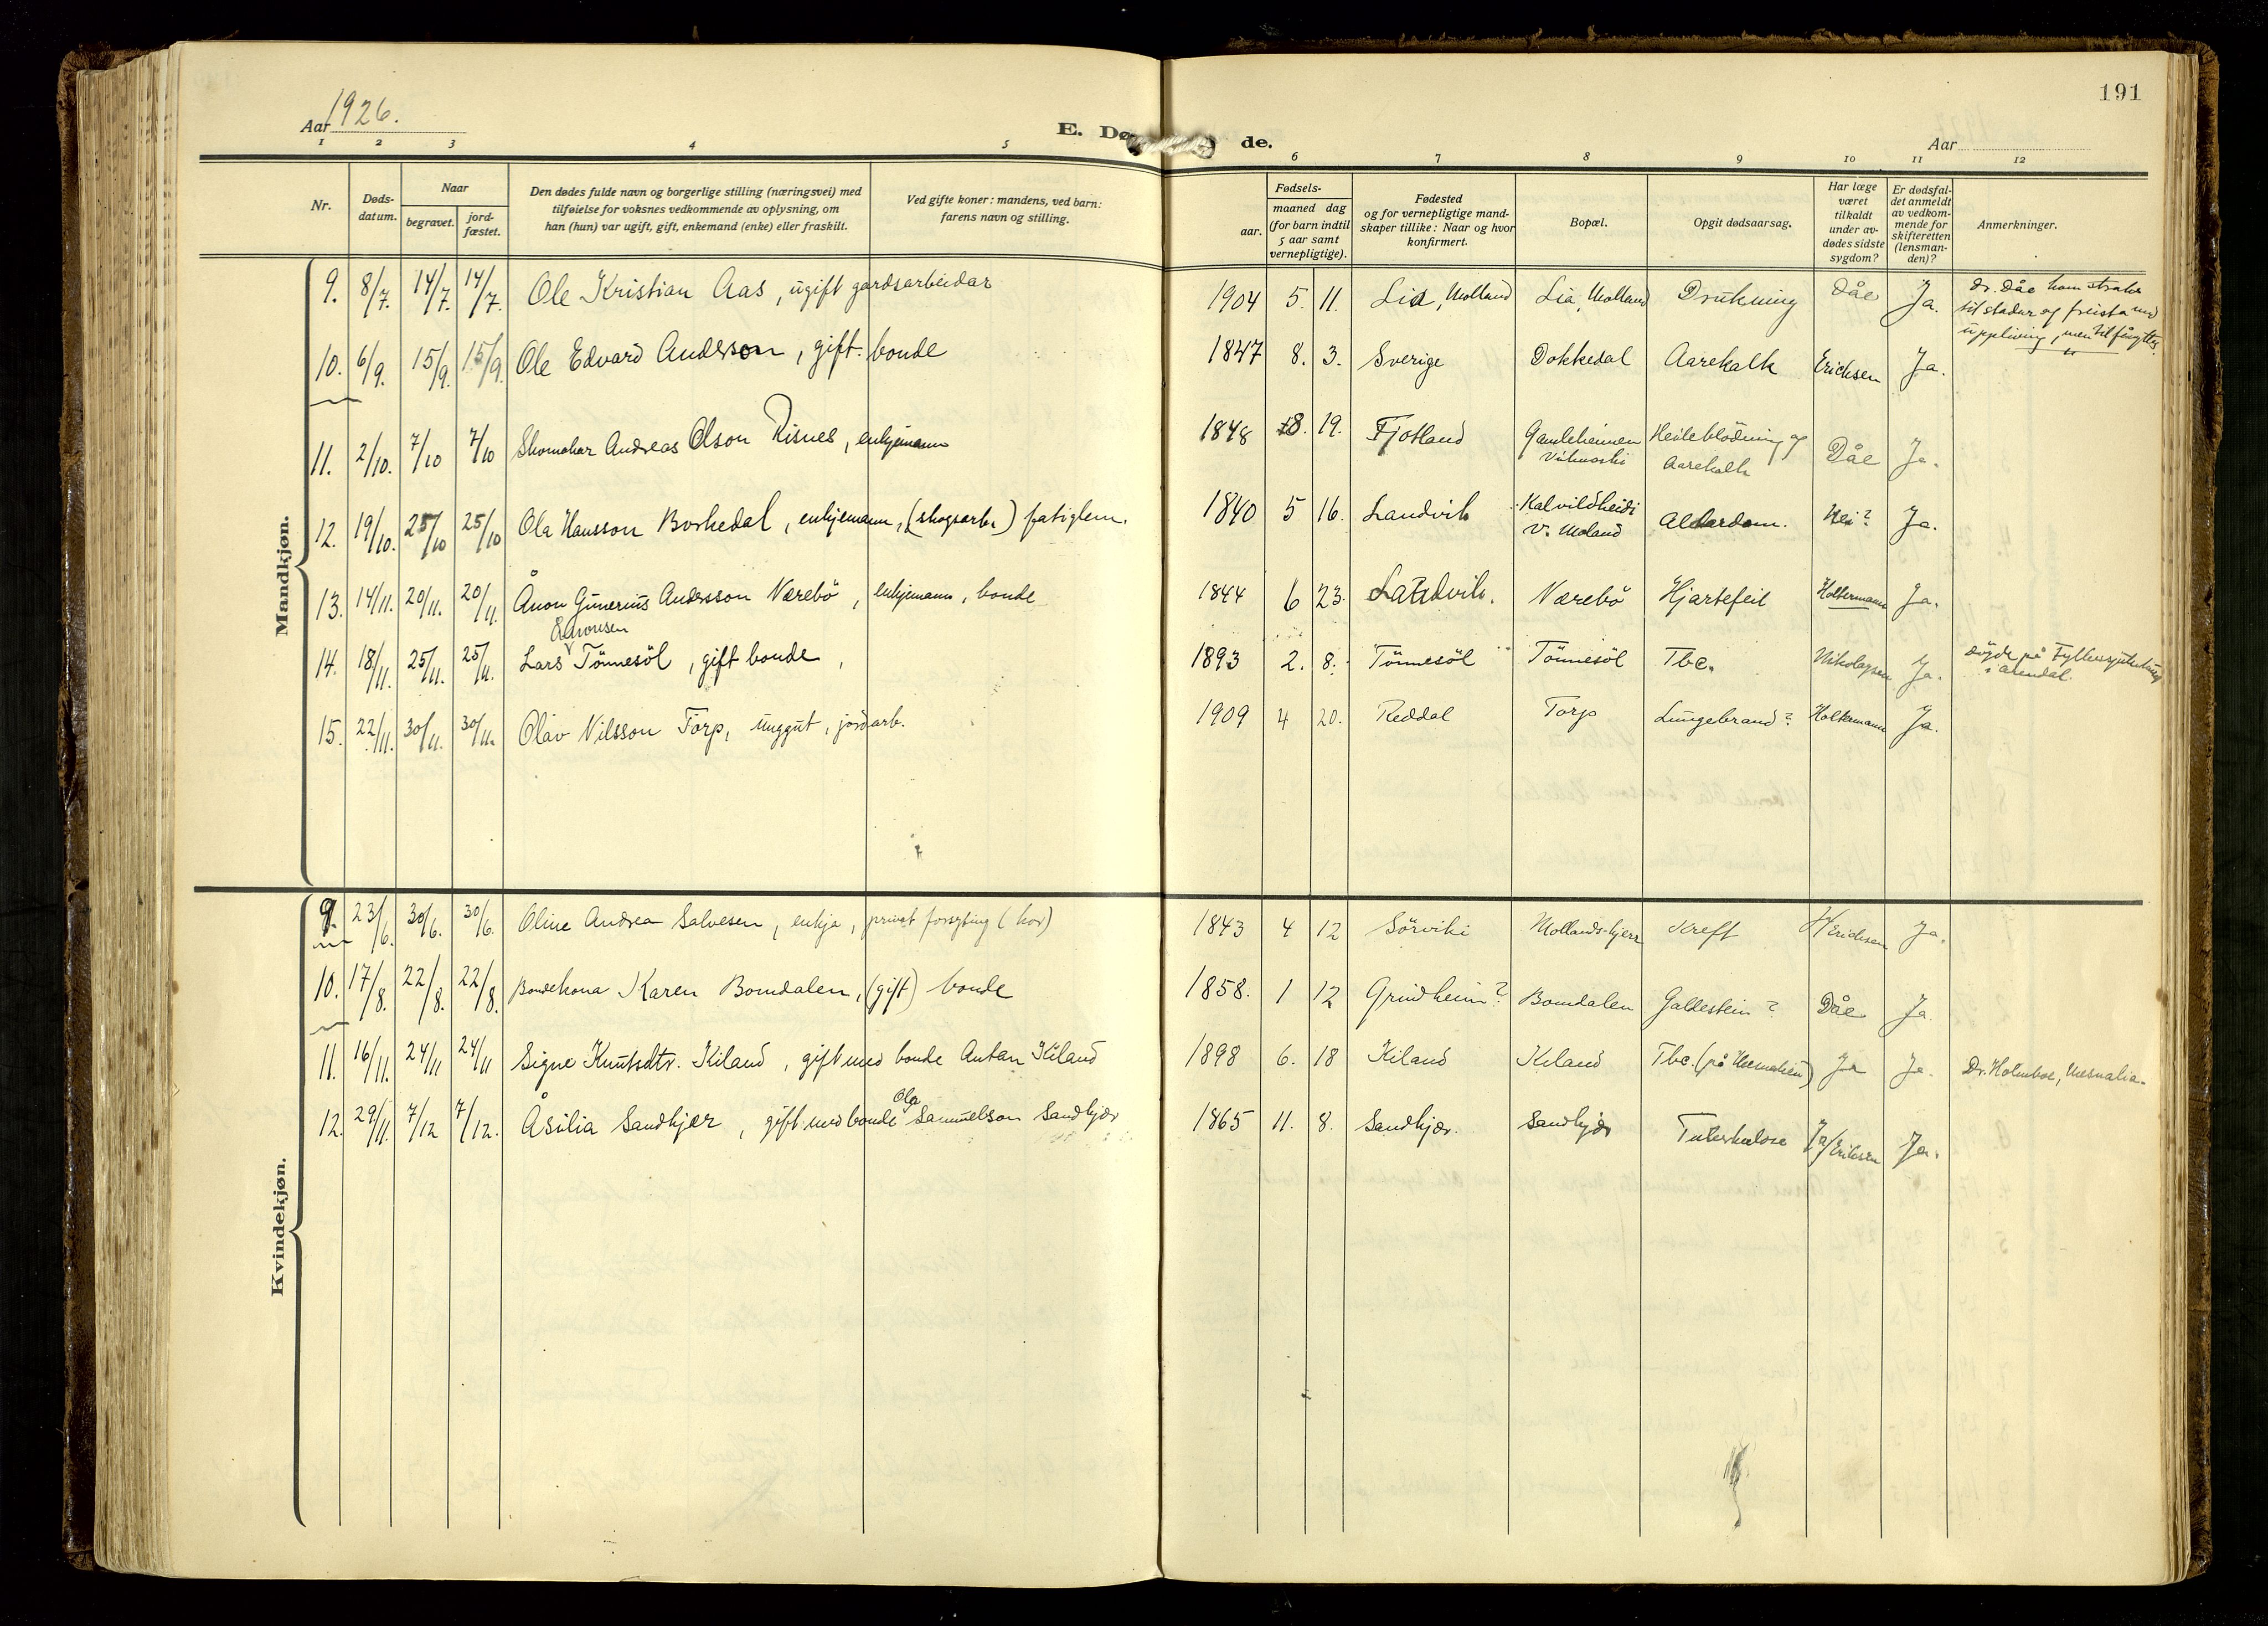 191
Aar 1926.
E. Dø de.
Aar
1 2 3 4 5 6 7 8 9 10 11 12
Nr.
Døds-
datum.
Naar
begravet.
jord-
fæstet.
Den dødes fulde navn og borgerlige stilling (næringsvei) med
tilføielse for voksnes vedkommende av oplysning, om
han (hun) var ugift, gift, enkemand (enke) eller fraskilt.
Ved gifte koner: mandens, ved barn:
farens navn og stilling.
Fødsels-
aar.
maaned dag
(for barn indtil
5 aar samt
vernepligtige).
Fødested
og for vernepligtige mand-
skaper tillike: Naar og hvor
konfirmert.
Bopæl.
Opgit dødsaarsag.
Har læge
været
tilkaldt
under av-
dødes sidste
sygdom?
Er dødsfal-
det anmeldt
av vedkom-
mende for
skifteretten
(lensman-
den)?
Anmerkninger.
Mandkjøn.
9. 8/7. 14/7. 14/7. Ole Kristian Aas, ugift gardsarbeidar 1904 5. 11. Lia, Molland Lia, Molland Drukning Dåe Ja. Dr. Dåe kom straks
til stadar og freista med
uppliving, men
10. 6/9. 15/9. 15/9. Ole Edvard Anderson, gift. bonde 1847 8. 3. Sverige Dokkedal Aarekalk Erichsen Ja.
11. 2/10. 7/10 7/10 Skomakar Andreas Olson Risnes, enkjemann 1848 8. 19. Fjotland Gamleheimen Heileblödning og
Aarekalk Dåe Ja.
12. 19/10. 25/10 25/10 Ola Hansson Borkedal, enkjemann, (skogsarb.) fatiglem. 1840 5 16. Landvik Kalvildheidi
V. Moland Alderdom. Nei? Ja.
13. 14/11. 20/11. 20/11. Ånon Gunerius Andersson Nærebö, enkjemann, bonde 1844 6 23. Landvik. Nærebö Hjartefeil Holtermann Ja.
14. 18/11. 25/11. 25/11. Lars Tönnesöl, gift bonde, 1893 2. 8. Tönnesöl Tönnesöl Tbc. Nikolaysen Ja. döyde på Fylkessjukehus
i Arendal.
15. 22/11. 30/11. 30/11. Olav Nilsson Torp, unggut, jordarb. 1909 4 20. Reddal Torp Lungebrand? Holtermann Ja.
Kvindekjøn.
9. 23/6. 30/6. 30/6. Oline Andrea Salvesen, enkja, privat forsyting (hos) 1843 4 12 Sörviki Mollands-kjerr Kreft Erichsen Ja.
10. 17/8. 22/8. 22/8. Bondekona Karen Bomdalen, (gift) bonde 1858. 1 12 Grindheim? Bomdalen Galdestein? Dåe Ja
11. 16/11. 24/11 24/11 Signe Knutsdtr. Kiland, gift med bonde Antan Kiland 1898 6. 18 Kiland Kiland Tbc. Ja Ja. Dr. Holmboe, Mesnalia.
12. 29/11. 7/12 7/12. Åsilia Sandkjær, gift med bonde Ola Samuelson Sandkjær 1865 11. 8. Sandkjær. Sandkjær Tuberkulose Ja/Eriksen Ja.